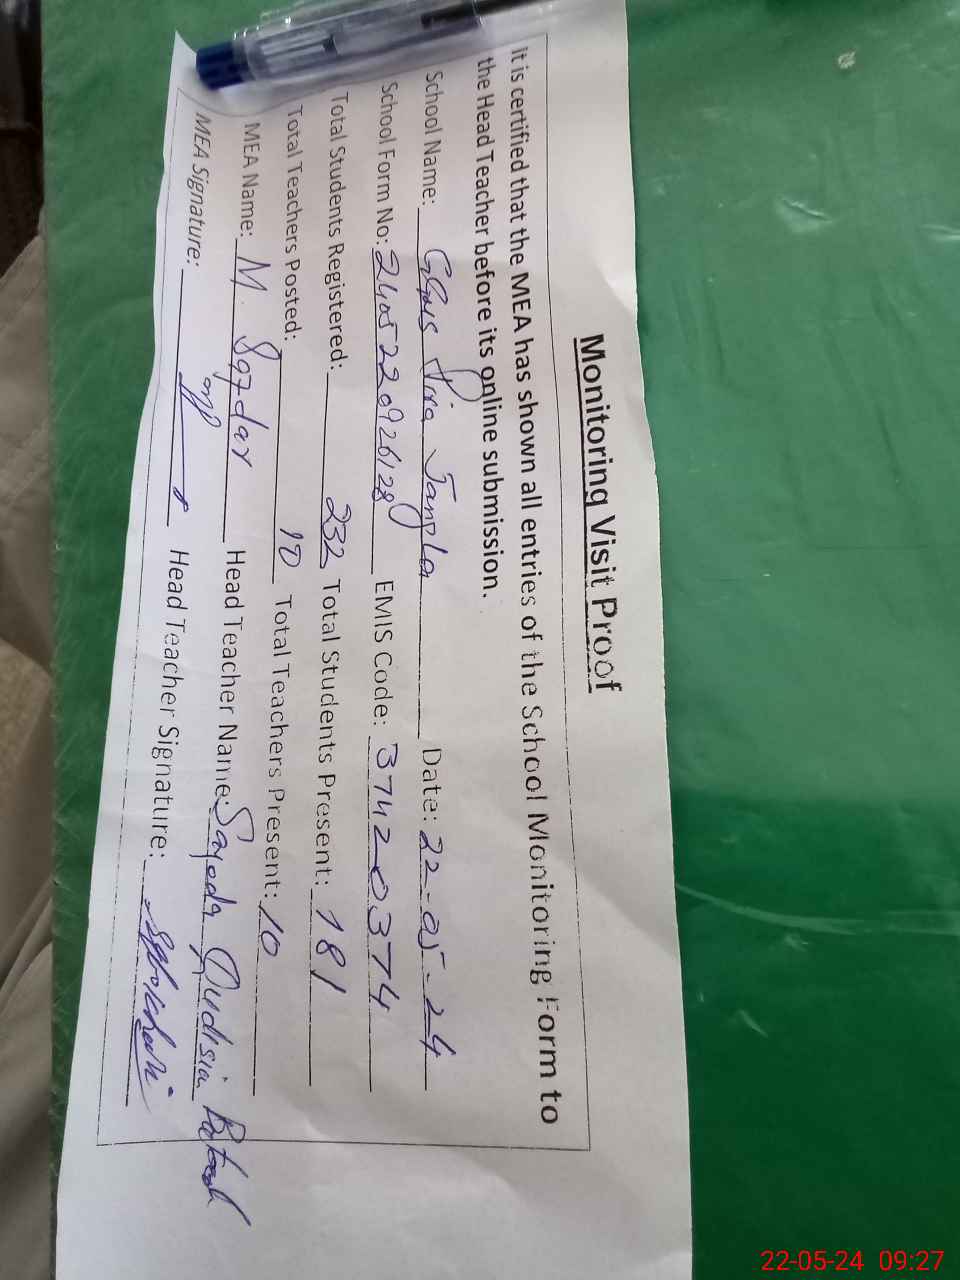 Monitoring Visit Proof
it is certified that the MEA has shown all entries of the School Monitoring Form to
the Head Teacher before its online submission.
School Name: Jangla Date: 22-05-24
School Form No: 2405220926128 EMIS Code: 37420374
Total Students Registered: 232 Total Students Present: 181
Total Teachers Posted: 10 Total Teachers Present: 10
MEA Name: M. Safdar Head Teacher Name: Sayeda Qudisia Batool
MEA Signature: Head Teacher Signature:
22-05-24 09:27